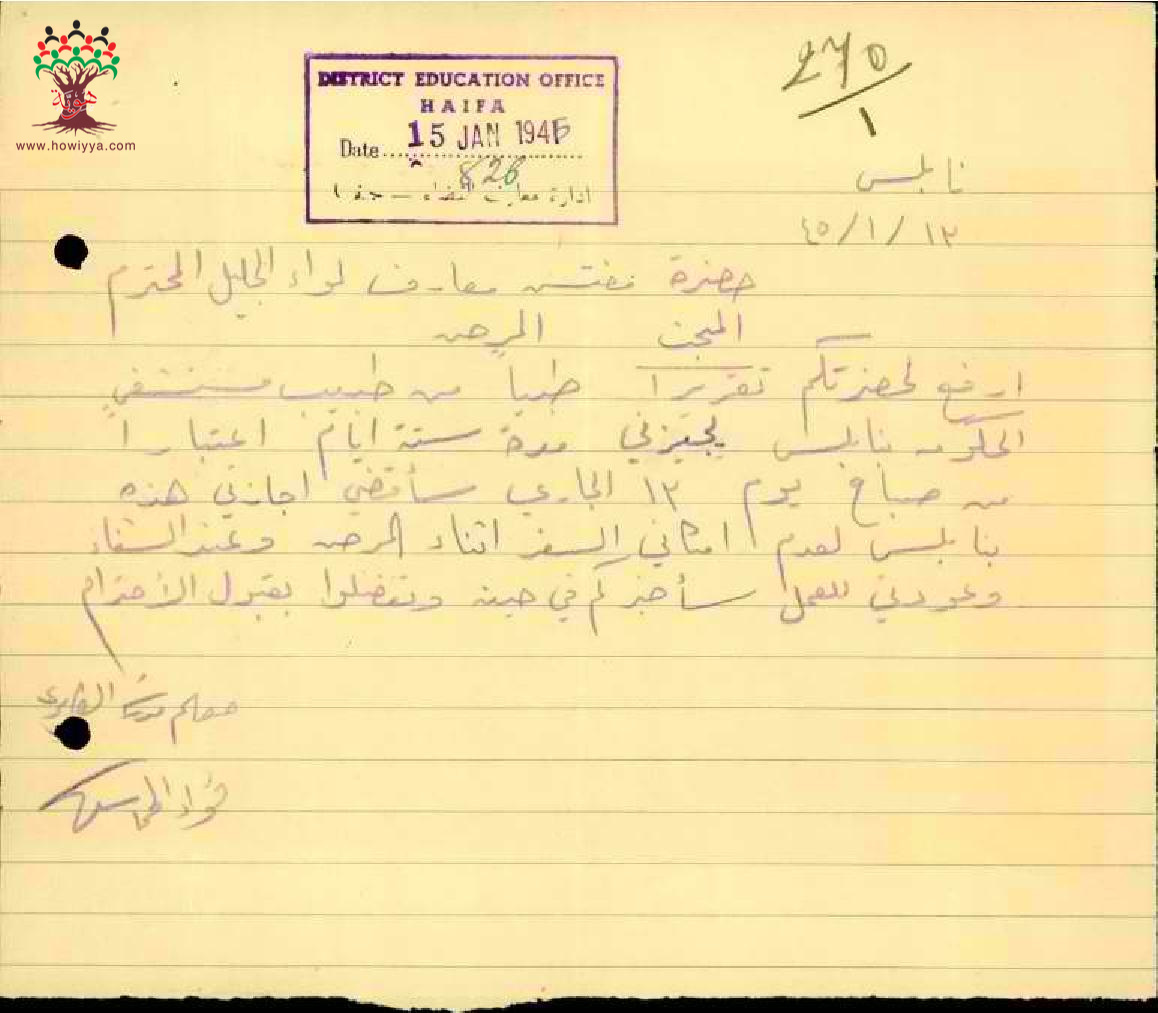 www.howiyya.com
DISTRICT EDUCATION OFFICE
HAIFA
Date 15 JAN 1945
826
ادارة معارف القضاء – حيفا
270
١
نابلس
١٣/١/٤٥
حضرة مفتش معارف لواء الجليل المحترم
المبحث المرض
ارفع لحضرتكم تقريراً طبياً من طبيب مستشفى
الحكومه بنابلس يجيزني مدة ستة ايام اعتباراً
من صباح يوم ١٣ الجاري سأقضي اجازتي هذه
بنابلس لعدم امكاني السفر اثناء المرض وعند الشفاء
وعودتي للعمل سأخبركم في حينه وتفضلوا بقبول الأحترام
معلم مدرسة
فؤاد